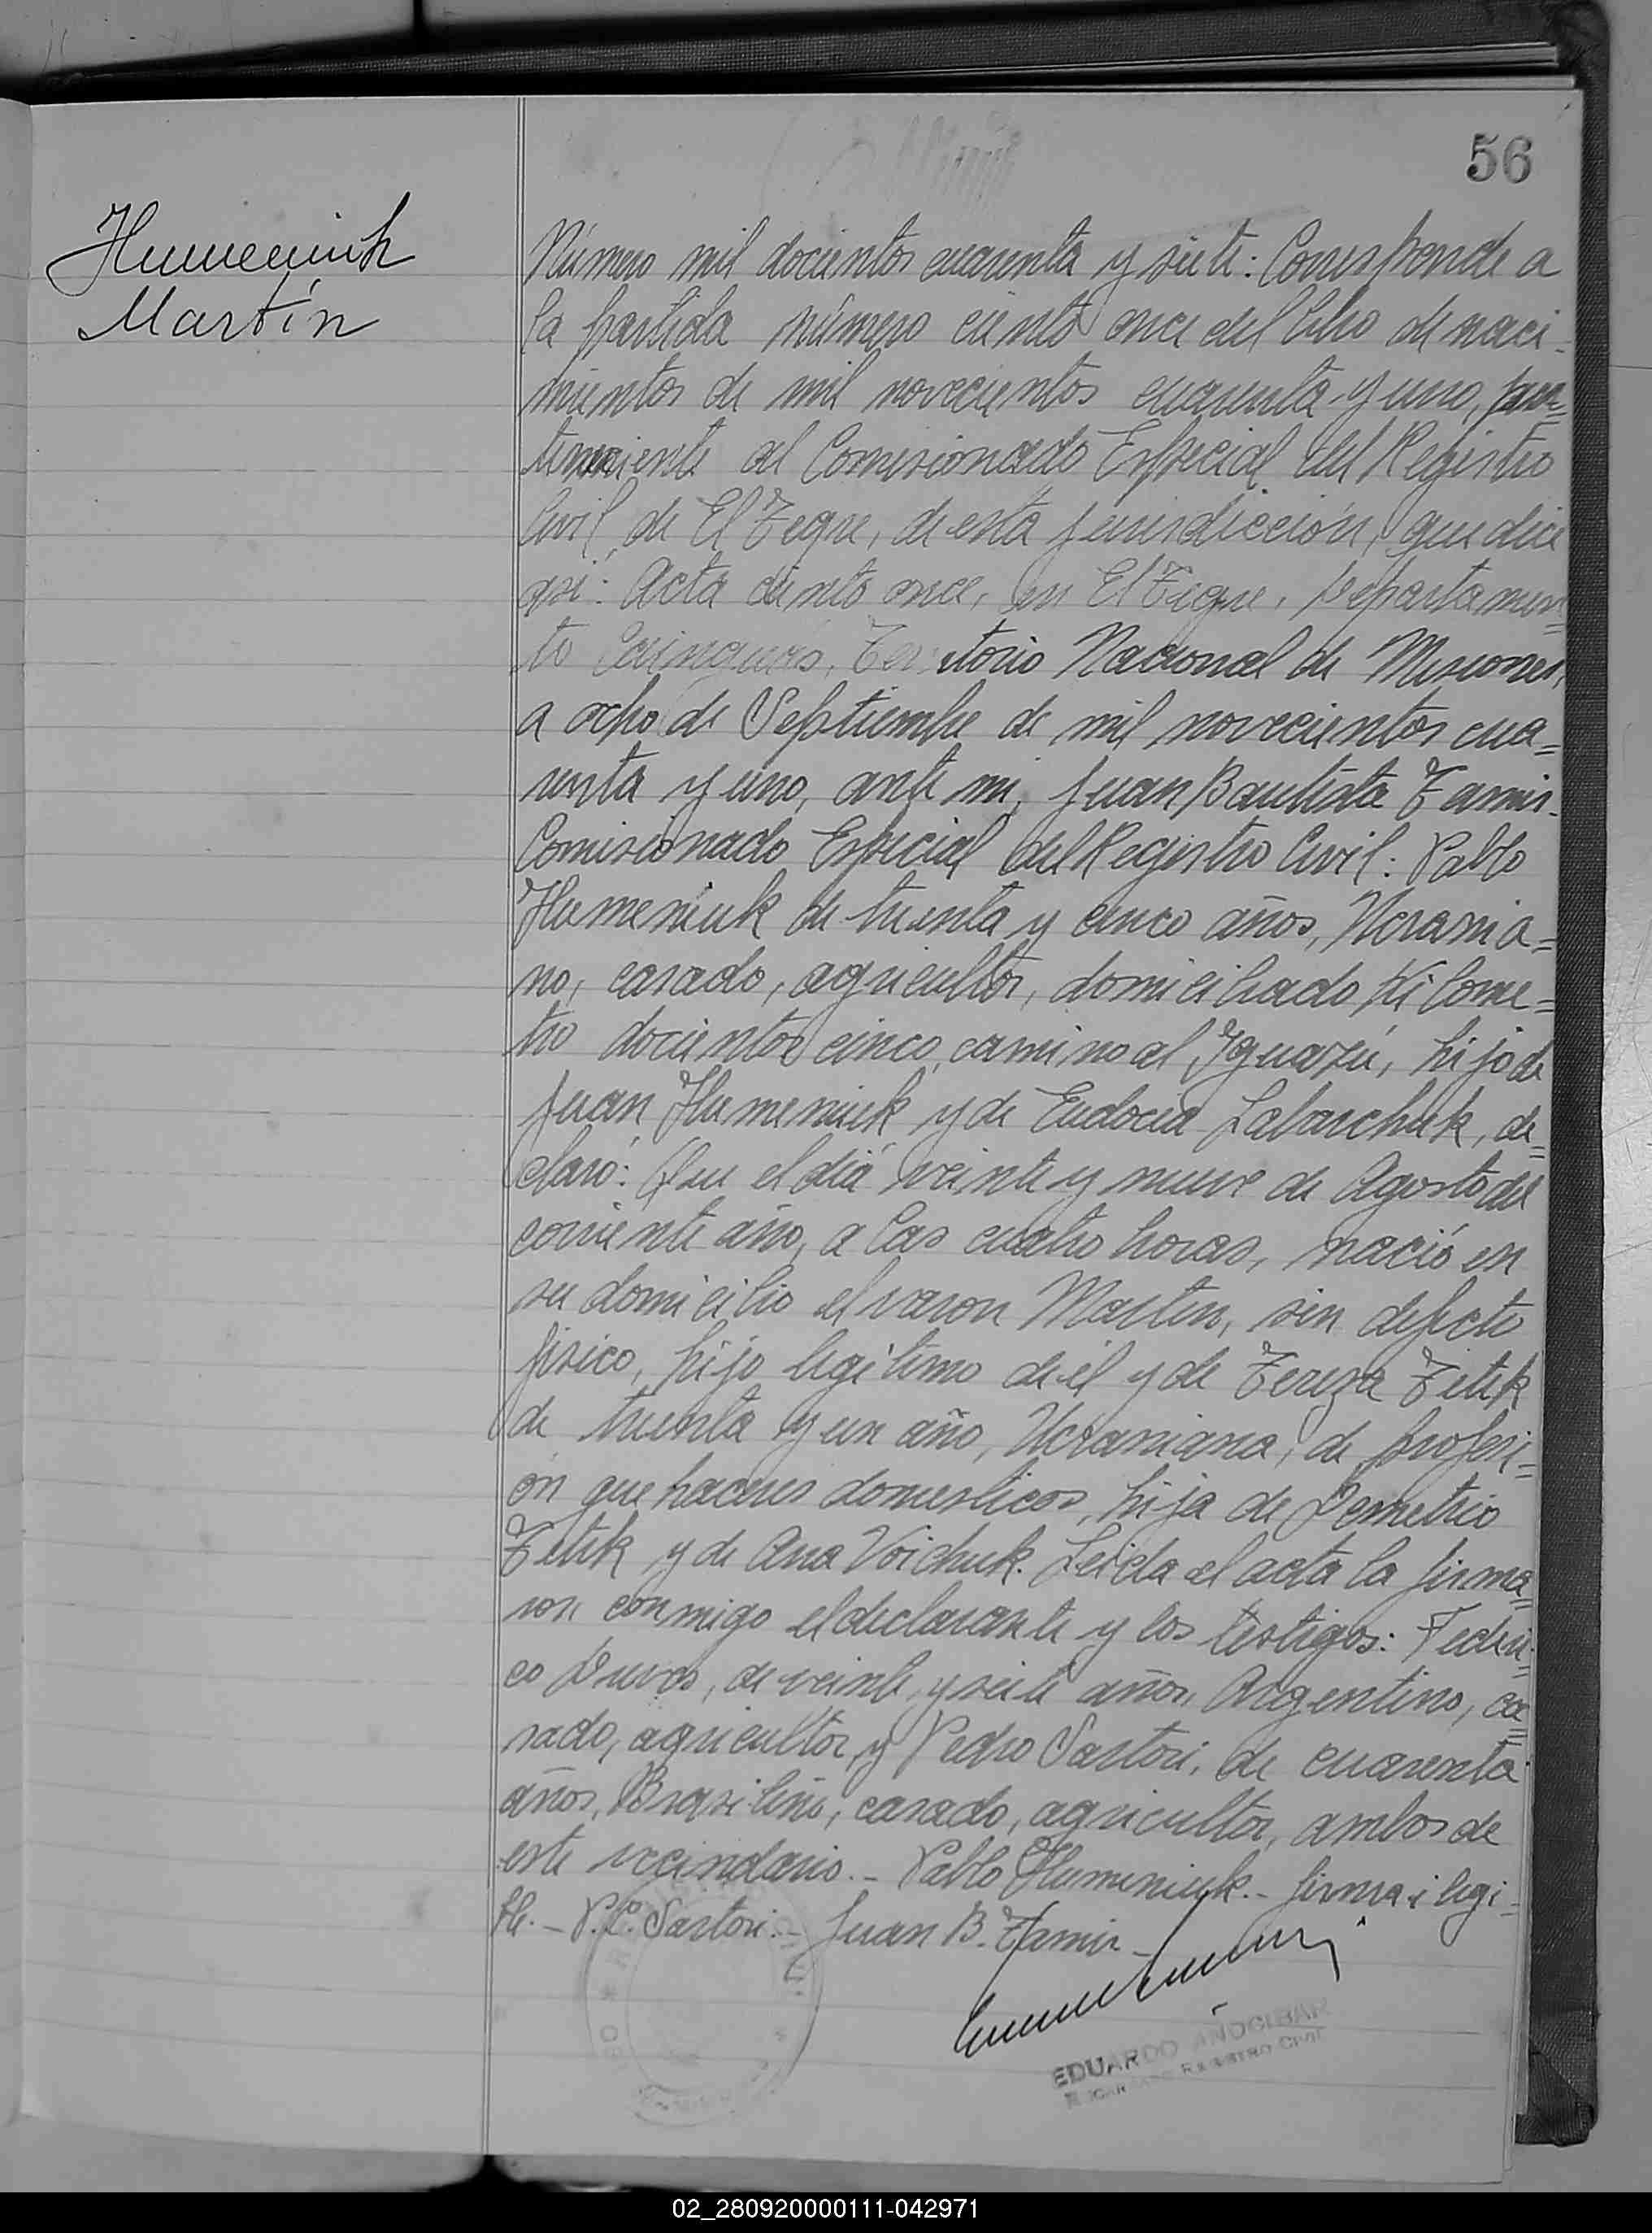 56
Humeniuk
Martín
Número mil docientos cuarenta y siete: Corresponde a
la partida número ciento once del libro de naci-
mientos de mil novecientos cuarenta y uno, per=
teneciente al Comisionado Especial del Registro
Civil de El Tigre, de esta jurisdicción, que dice
asi: Acta ciento once, en El Tigre, Departamen=
to Cainguás, Territorio Nacional de Misiones,
a ocho de Septiembre de mil novecientos cua=
renta y uno, ante mi, Juan Bautista
Comisionado Especial del Registro Civil: Pablo
Humeniuk de treinta y cinco años, Ucrania=
no, casado, agricultor, domiciliado Kilome=
tro docientos cinco, camino al Iguazú, hijo de
Juan Humeniuk y de Eudocia Labarchuk, de=
claró: Que el diá veinte y nueve de Agosto del
corriente año, a las cuatro horas, nació en
su domicilio el varon Martin, sin defecto
fisico, hijo legítimo de él y de Tereza Zetek
de treinta y un año, Ucraniana, de profesi=
ón que haceres domesticos, hija de Demetrio
Zetek y de Ana Voichuk. Leida el acta la firma=
ron conmigo el declarante y los testigos: Federi=
co de veinte y siete años, Argentino, ca=
sado, agricultor y Pedro Sartori, de cuarenta
años, Brasileño, casado, agricultor, ambos de
este vecindario.- Pablo Humeniuk.- firma ilegi-
ble.- P. Sartori.- Juan B.
EDUARDO ANOCIBAR
REGISTRO CIVIL
02_280920000111-042971